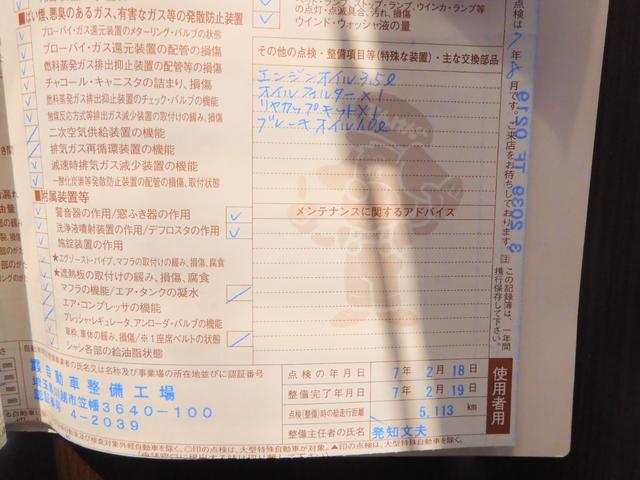 ■ばい煙、悪臭のあるガス、有害なガス等の発散防止装置
ブローバイ・ガス還元装置のメターリング・バルブの状態
ブローバイ・ガス還元装置の配管の損傷
燃料蒸発ガス排出抑止装置の配管等の損傷
チャコール・キャニスタの詰まり、損傷
燃料蒸発ガス排出抑止装置のチェック・バルブの機能
触媒反応方式等排出ガス減少装置の取付けの緩み、損傷
二次空気供給装置の機能
排気ガス再循環装置の機能
減速時排気ガス減少装置の機能
一酸化炭素等発散防止装置の配管の損傷、取付状態
■附属装置等
警音器の作用/窓ふき器の作用
洗浄液噴射装置の作用/デフロスタの作用
施錠装置の作用
★エグゾースト・パイプ、マフラの取付けの緩み、損傷、腐食
★遮熱板の取付けの緩み、損傷、腐食
マフラの機能/エア・タンクの凝水
エア・コンプレッサの機能
プレッシャ・レギュレータ、アンローダ・バルブの機能
車枠、車体の緩み、損傷/※1座席ベルトの状態
シャシ各部の給油脂状態
ストップ・ランプ、ウインカ・ランプ等
の点灯・点滅具合、汚れ、損傷
ウインド・ウォッシャ液の量
その他の点検・整備項目等(特殊な装置)・主な交換部品
エンジンオイル3.5ℓ
オイルフィルター×1
リヤカップキット×1
ブレーキオイル1.0ℓ
メンテナンスに関するアドバイス
点検の年月日 7年 2月 18日
整備完了年月日 7年 2月 19日
点検(整備)時の総走行距離 5,113 km
整備主任者の氏名 発知文夫
使用者用
点検は 7年 8月です。ご来店をお待ちしております。
3 2039 TF 0219
注 この記録簿は、一年間
携行保存して下さい。
の氏名又は名称及び事業場の所在地並びに認証番号
自動車整備工場
川越市笠幡3640-100
4-2039